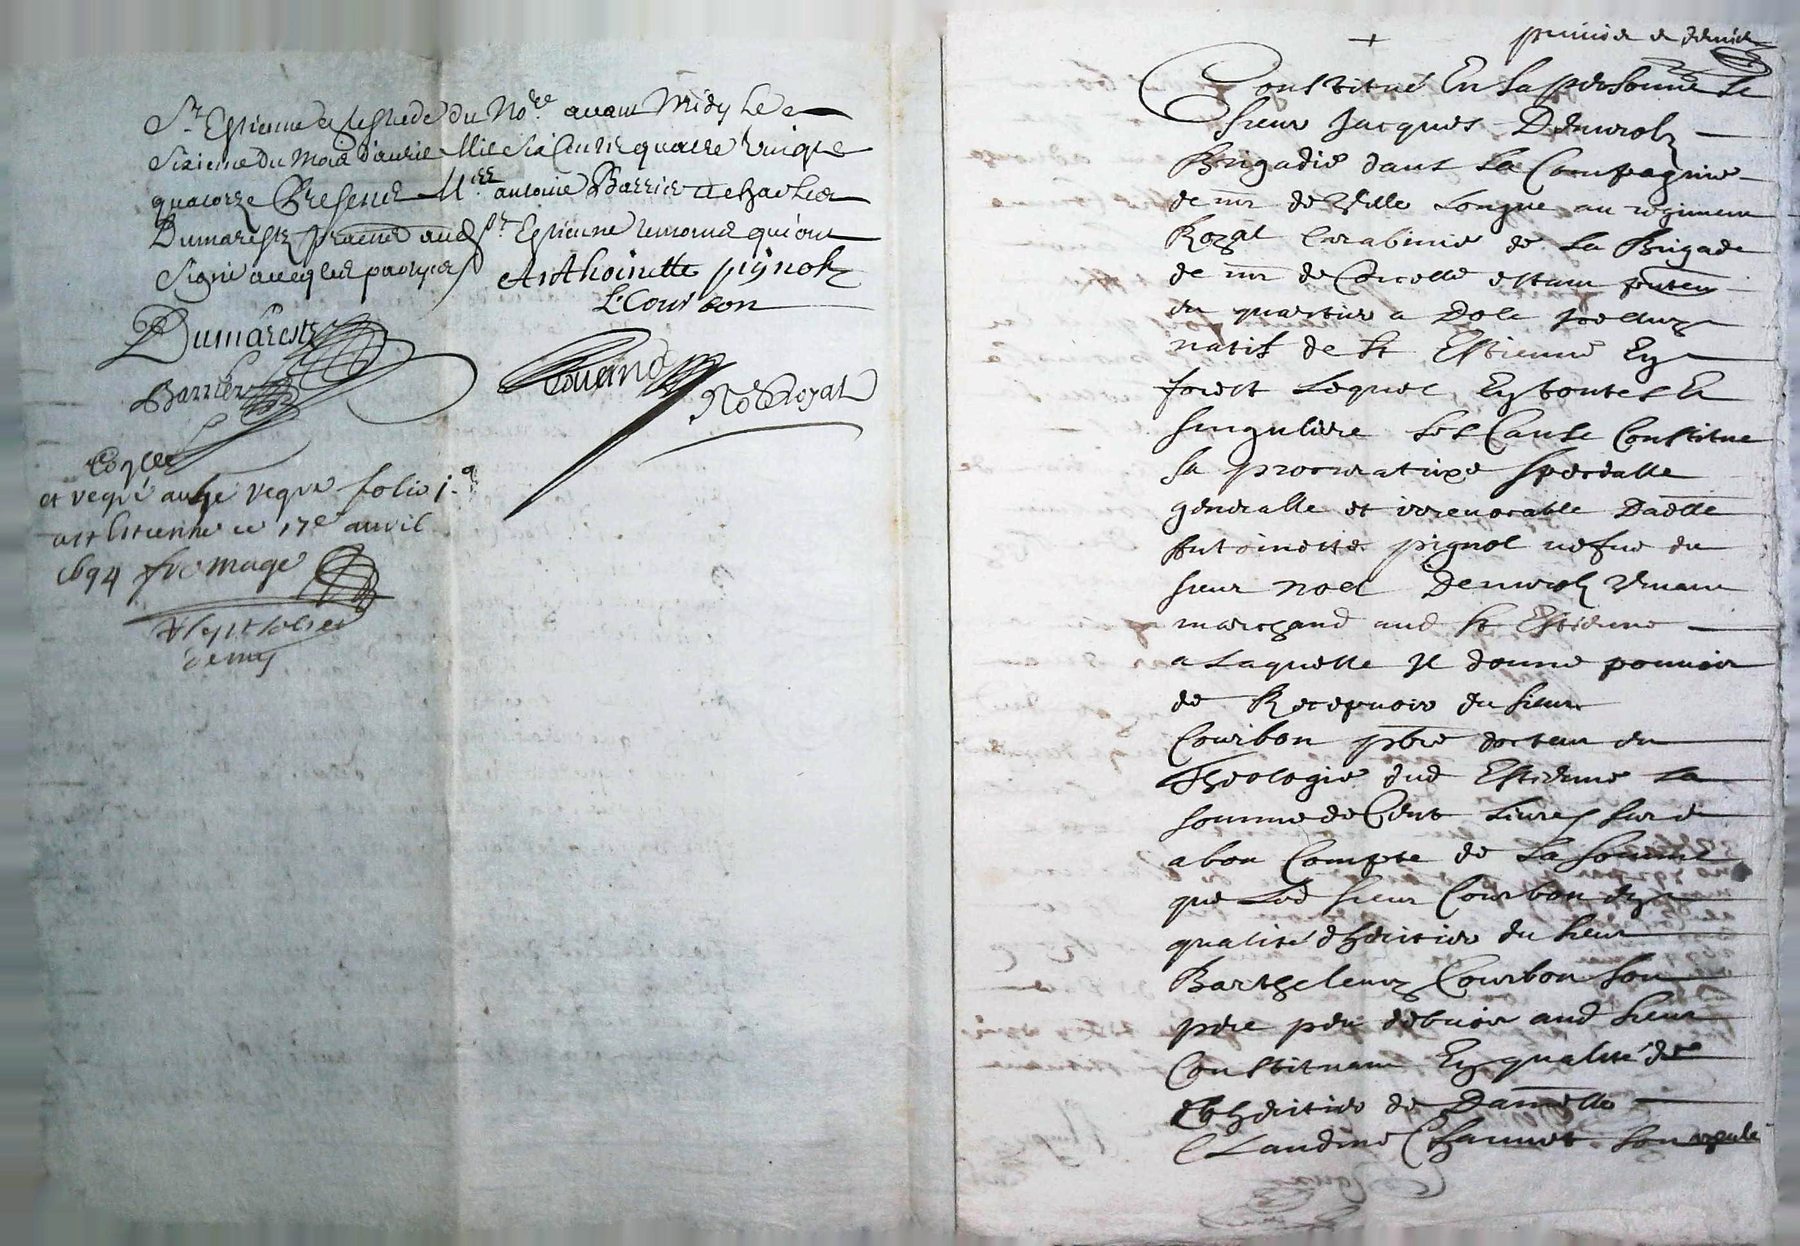 St Estienne estude du No.re auant Midy Le
Sixieme du Mois d'auril Mil Six Cents quatre vingts
quatorze Presents Mr antoine Barrier
Dumarestz praticiens aud St Estienne qui ont
Signé aueq les parties
Anthoinette pignol
L Courbon
Dumarestz
Barrier
No.re Royal
et regré au 9e regre folio
a St Estienne ce 17e auril
1694 fromage
premier et dernier
Constitué En sa personne Le
sieur Jacques Denurolz
Brigadié dans La Compagnie
de mr de Ville Longue au regiment
Royal Carabinié de La Brigade
de mr de Courcelle estant
en quartier a Dole
natif de St Estienne En
forest Lequel En toutes Et
singuliere ses Cause Constitue
sa procuratrixe specialle
generalle et irreuocable Dadlle
Antoinette pignol vefue du
sieur noel Denurolz viuant
marchand aud St Estienne
a Laquelle Jl donne pouuoir
de Recepuoir du sieur
Courbon pbre docteur en
Theologie dud Estienne La
somme de Cent Liures sur et
a bon Compte de La somme
que Led sieur Courbon En
qualité dheritier du sieur
Barthelemy Courbon son
pere peu debuoir aud sieur
Constituant En qualité de
Coheritier de Damlle
Claudine Chauuet son